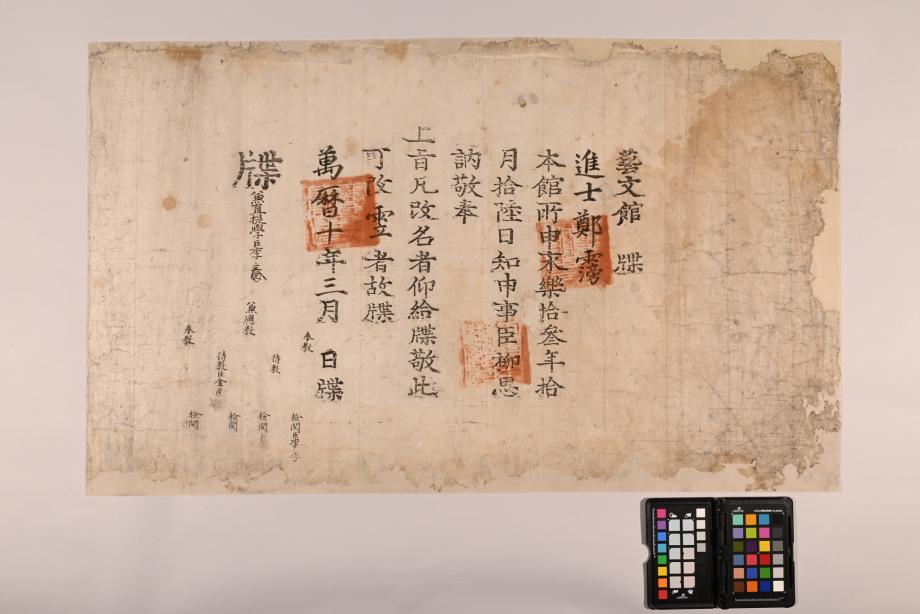 藝文館 牒
進士鄭霶
本館所申永樂拾叁年拾
月拾陸日知申事臣柳思
訥敬奉
上旨凡改名者仰給牒敬此
可改 者故牒
萬曆十年三月 日牒
奉教
檢閱臣李
待教
檢閱
牒 兼直提學臣李
兼應教
檢閱
待教臣金
奉教
檢閱